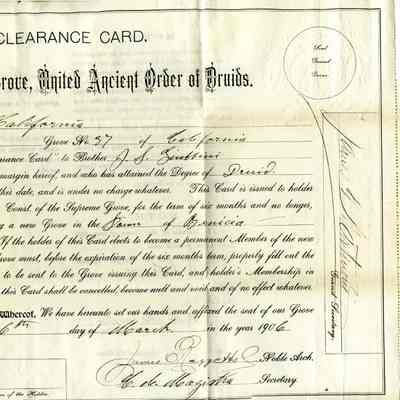 CLEARANCE CARD.
Grove, United Ancient Order of Druids.
California
Grove No. 37 of California
rance Card" to Brother J. S.
margin hereof, and who has attained the Degree of Druid
this date, and is under no charge whatever. This Card is issued to holder
Const. of the Supreme Grove, for the term of six months and no longer,
g a new Grove in the Town of Benicia
If the holder of this Card elects to become a permanent Member of the new
rove must, before the expiration of the six months term, properly fill out the
to be sent to the Grove issuing this Card, and holder's Membership in
this Card shall be cancelled, become null and void and of no effect whatever.
Whereof, We have hereunto set our hands and affixed the seal of our Grove
6th day of March in the year 1906
James Noble Arch.
De Magistra Secretary.
n of the Holder.
Seal
Grand
Grove
James
Grand Secretary.